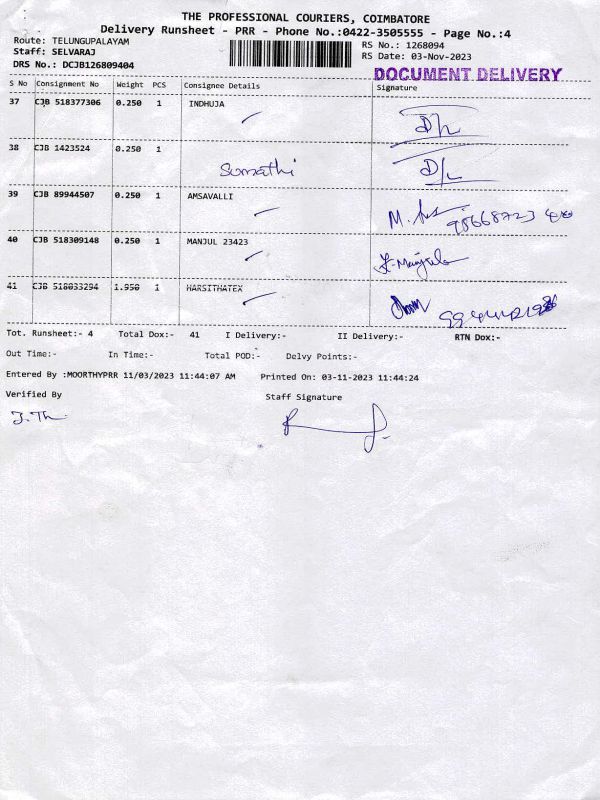 THE PROFESSIONAL COURIERS, COIMBATORE
Delivery Runsheet - PRR - Phone No.:0422-3505555 - Page No.:4
Route: TELUNGUPALAYAM
Staff: SELVARAJ
DRS No.: DCJB126809404
RS No.: 1268094
RS Date: 03-Nov-2023
DOCUMENT DELIVERY
S No Consignment No Weight PCS Consignee Details Signature
37 CJB 518377306 0.250 1 INDHUJA
38 CJB 1423524 0.250 1
Sumathi
39 CJB 89944507 0.250 1 AMSAVALLI
40 CJB 518309148 0.250 1 MANJUL 23423
41 CJB 518033294 1.950 1 HARSITHATEX
Tot. Runsheet:- 4 Total Dox:- 41 I Delivery:- II Delivery:- RTN Dox:-
Out Time:- In Time:- Total POD:- Delvy Points:-
Entered By :MOORTHYPRR 11/03/2023 11:44:07 AM Printed On: 03-11-2023 11:44:24
Verified By Staff Signature